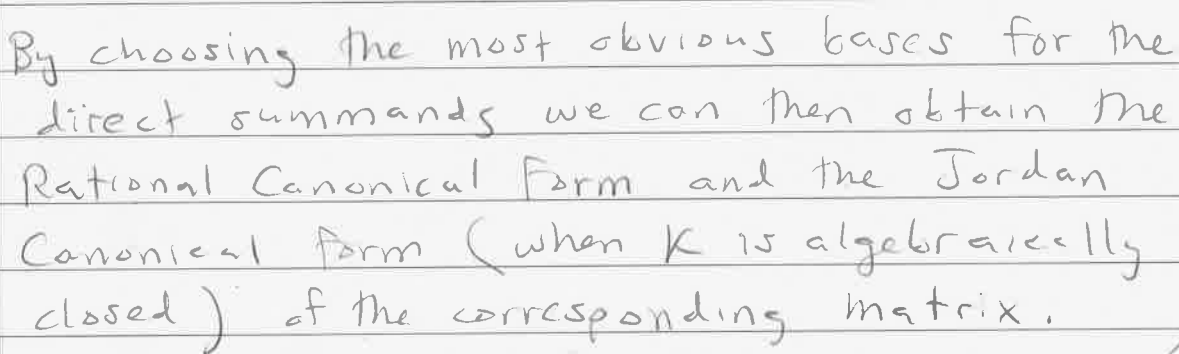 By choosing the most obvious bases for the
direct summands we can then obtain the
Rational Canonical Form and the Jordan
Canonical form (when K is algebraically
closed) of the corresponding matrix.